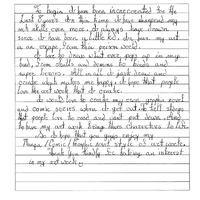 To begin I have been incarcerated for the
last 8 years. In this time I have deepened my
art skills even more. I always have drawn
since I have been a little kid. I've used my art
as an escape from this prison world.
I love to draw what ever pops up in my
head, from skulls and demons to birds and
super heroes. Still in all I just draw and
create what makes me happy. I hope that people
love the art work that I create.
I would love to create my own graphic novel
and comic series when I get out. To tell stories
that people love to read and can't put down. And
to have my art work bring those characters to life.
I do hope that you guys enjoy my
Manga / Comic / Graphic novel style of art work.
Thank you kindly for taking an interest
in my art work.